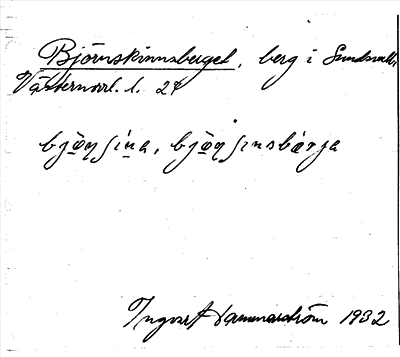 Björnskinnsberget, berg i Sundsvall,
Västernorrl. l. 24
bjö̱ɳʃiṉa, bjö̱ɳʃınsbärja
Ingvart Hammarström 1932